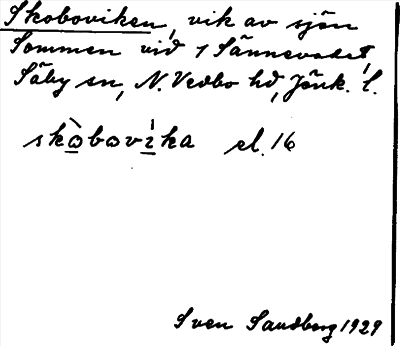 Skoboviken, vik av sjön
Sommen vid 1 Sännevadet,
Säby sn, N. Vedbo hd, Jönk. l.
skòbovíka el. 16
Sven Sandberg 1929